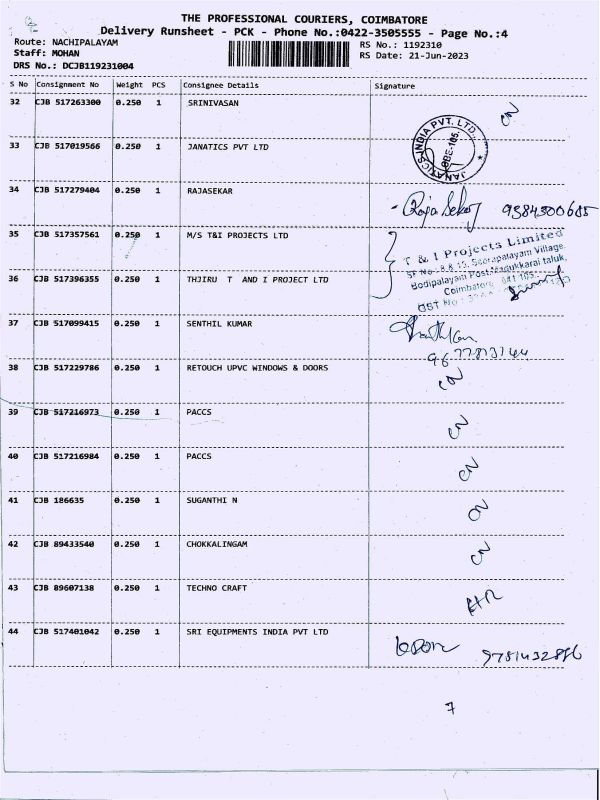 THE PROFESSIONAL COURIERS, COIMBATORE
Delivery Runsheet - PCK - Phone No.:0422-3505555 - Page No.:4
Route: NACHIPALAYAM
RS No.: 1192310
Staff: MOHAN
RS Date: 21-Jun-2023
DRS No.: DCJB119231004
S No Consignment No Weight PCS Consignee Details Signature
32 CJB 517263300 0.250 1 SRINIVASAN CN
33 CJB 517019566 0.250 1 JANATICS PVT LTD JANATICS INDIA PVT. LTD.
34 CJB 517279404 0.250 1 RAJASEKAR Raja Sekar
35 CJB 517357561 0.250 1 M/S T&I PROJECTS LTD
T & I Projects Limited
Village,
Bodipalayam Post, Madukkarai taluk,
Coimbatore
GST No
36 CJB 517396355 0.250 1 THJIRU T AND I PROJECT LTD
37 CJB 517099415 0.250 1 SENTHIL KUMAR
38 CJB 517229786 0.250 1 RETOUCH UPVC WINDOWS & DOORS CN
39 CJB 517216973 0.250 1 PACCS CN
40 CJB 517216984 0.250 1 PACCS CN
41 CJB 186635 0.250 1 SUGANTHI N CN
42 CJB 89433540 0.250 1 CHOKKALINGAM CN
43 CJB 89607138 0.250 1 TECHNO CRAFT
44 CJB 517401042 0.250 1 SRI EQUIPMENTS INDIA PVT LTD
7